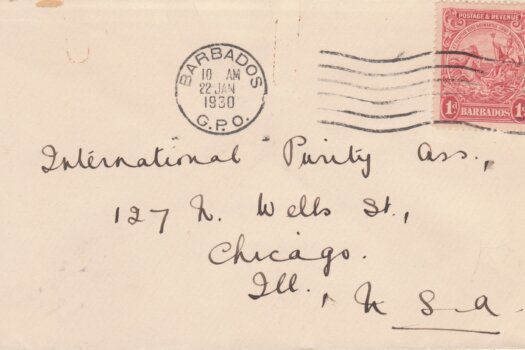 POSTAGE & REVENUE
1d BARBADOS 1d
BARBADOS
10 AM
22 JAN
1930
G.P.O.
International Purity Ass.,
127 N. Wells St.,
Chicago.
Ill., U S A